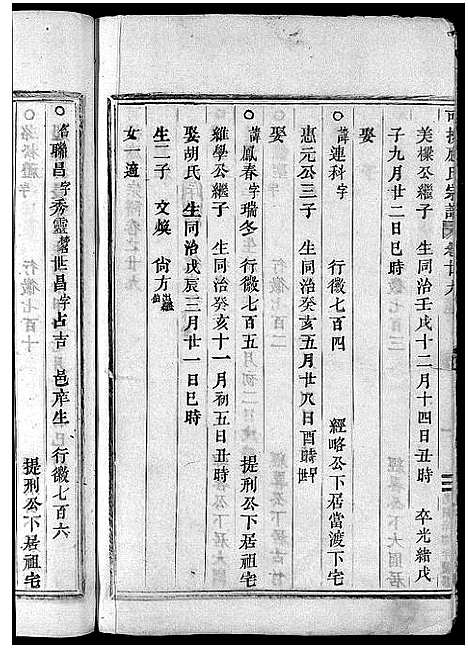 氏宗譜 卷廿九
美樑公繼子 生同治壬戌十二月十四日丑時 卒光緒戊
子九月廿二日巳時
娶
諱連科字 行徽七百四 經略公下居當渡下宅
惠元公三子 生同治癸亥五月廿八日酉時
娶
諱鳳春字瑞冬 行徽七百五 提刑公下居祖宅
維學公繼子 生同治癸亥十一月初五日丑時
娶胡氏 生同治戊辰三月廿一日巳時
生二子 文煥 尙方
女一適
諱聯昌字秀靈 世昌字占吉 邑庠生 行徽七百六 提刑公下居祖宅